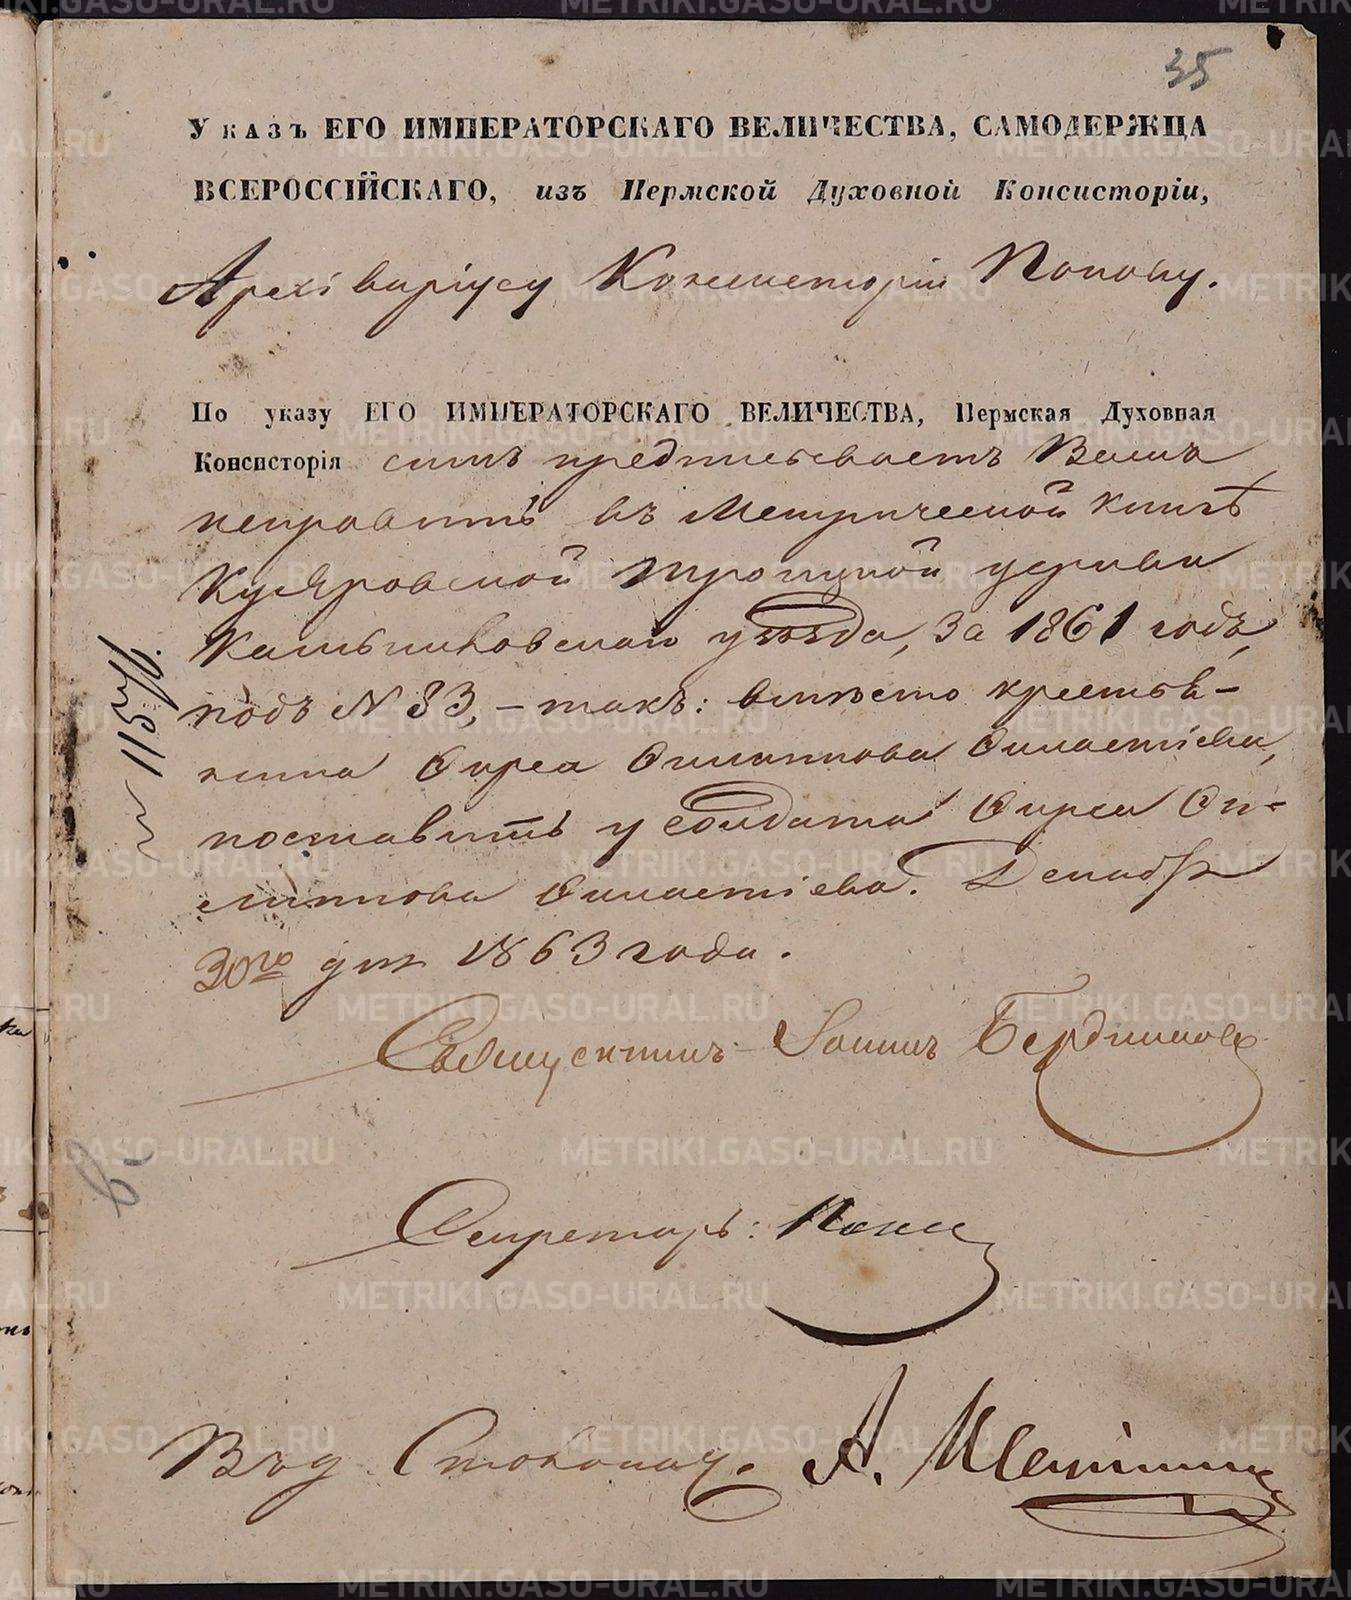 35
Указъ ЕГО ИМПЕРАТОРСКАГО ВЕЛИЧЕСТВА, САМОДЕРЖЦА
ВСЕРОССІЙСКАГО, изъ Пермской Духовной Консисторіи,
Архиваріусу Консисторіи Попову.
По указу ЕГО ИМПЕРАТОРСКАГО ВЕЛИЧЕСТВА, Пермская Духовная
Консисторія симъ предписываетъ Вамъ
исправить въ Метрической книгѣ
Троицкой церкви
уѣзда, за 1861 годъ,
подъ N 33, – такъ: вмѣсто крестья-
нина Фирса Филиппова Филастіева,
поставить у солдата Фирса Фи-
липпова Филастіева. Декабря
30го дня 1863 года.
Іоаннъ Бердниковъ
Секретарь:
Столонач. А.
METRIKI.GASO-URAL.RU